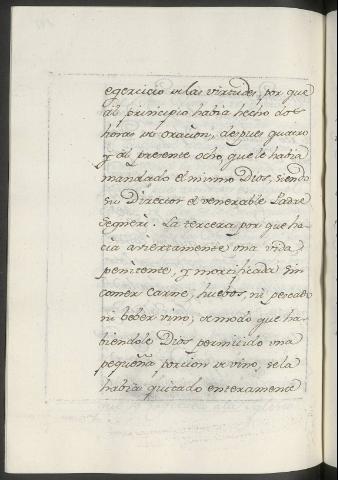 egercicio de las virtudes, por que
al principio habia hecho dos
horas de oracion, despues quatro
y al presente ocho, que le habia
mandado el mismo Dios, siendo
su Director el venerable Padre
Señeri. La tercera por que ha
cia aviertamente una vida
penitente, y mortificada sin
comer carne, huebos, ni pescado
ni beber vino; de modo que ha-
biendole Dios permitido una
pequeña porcion de vino, se la
habia quitado enteramente